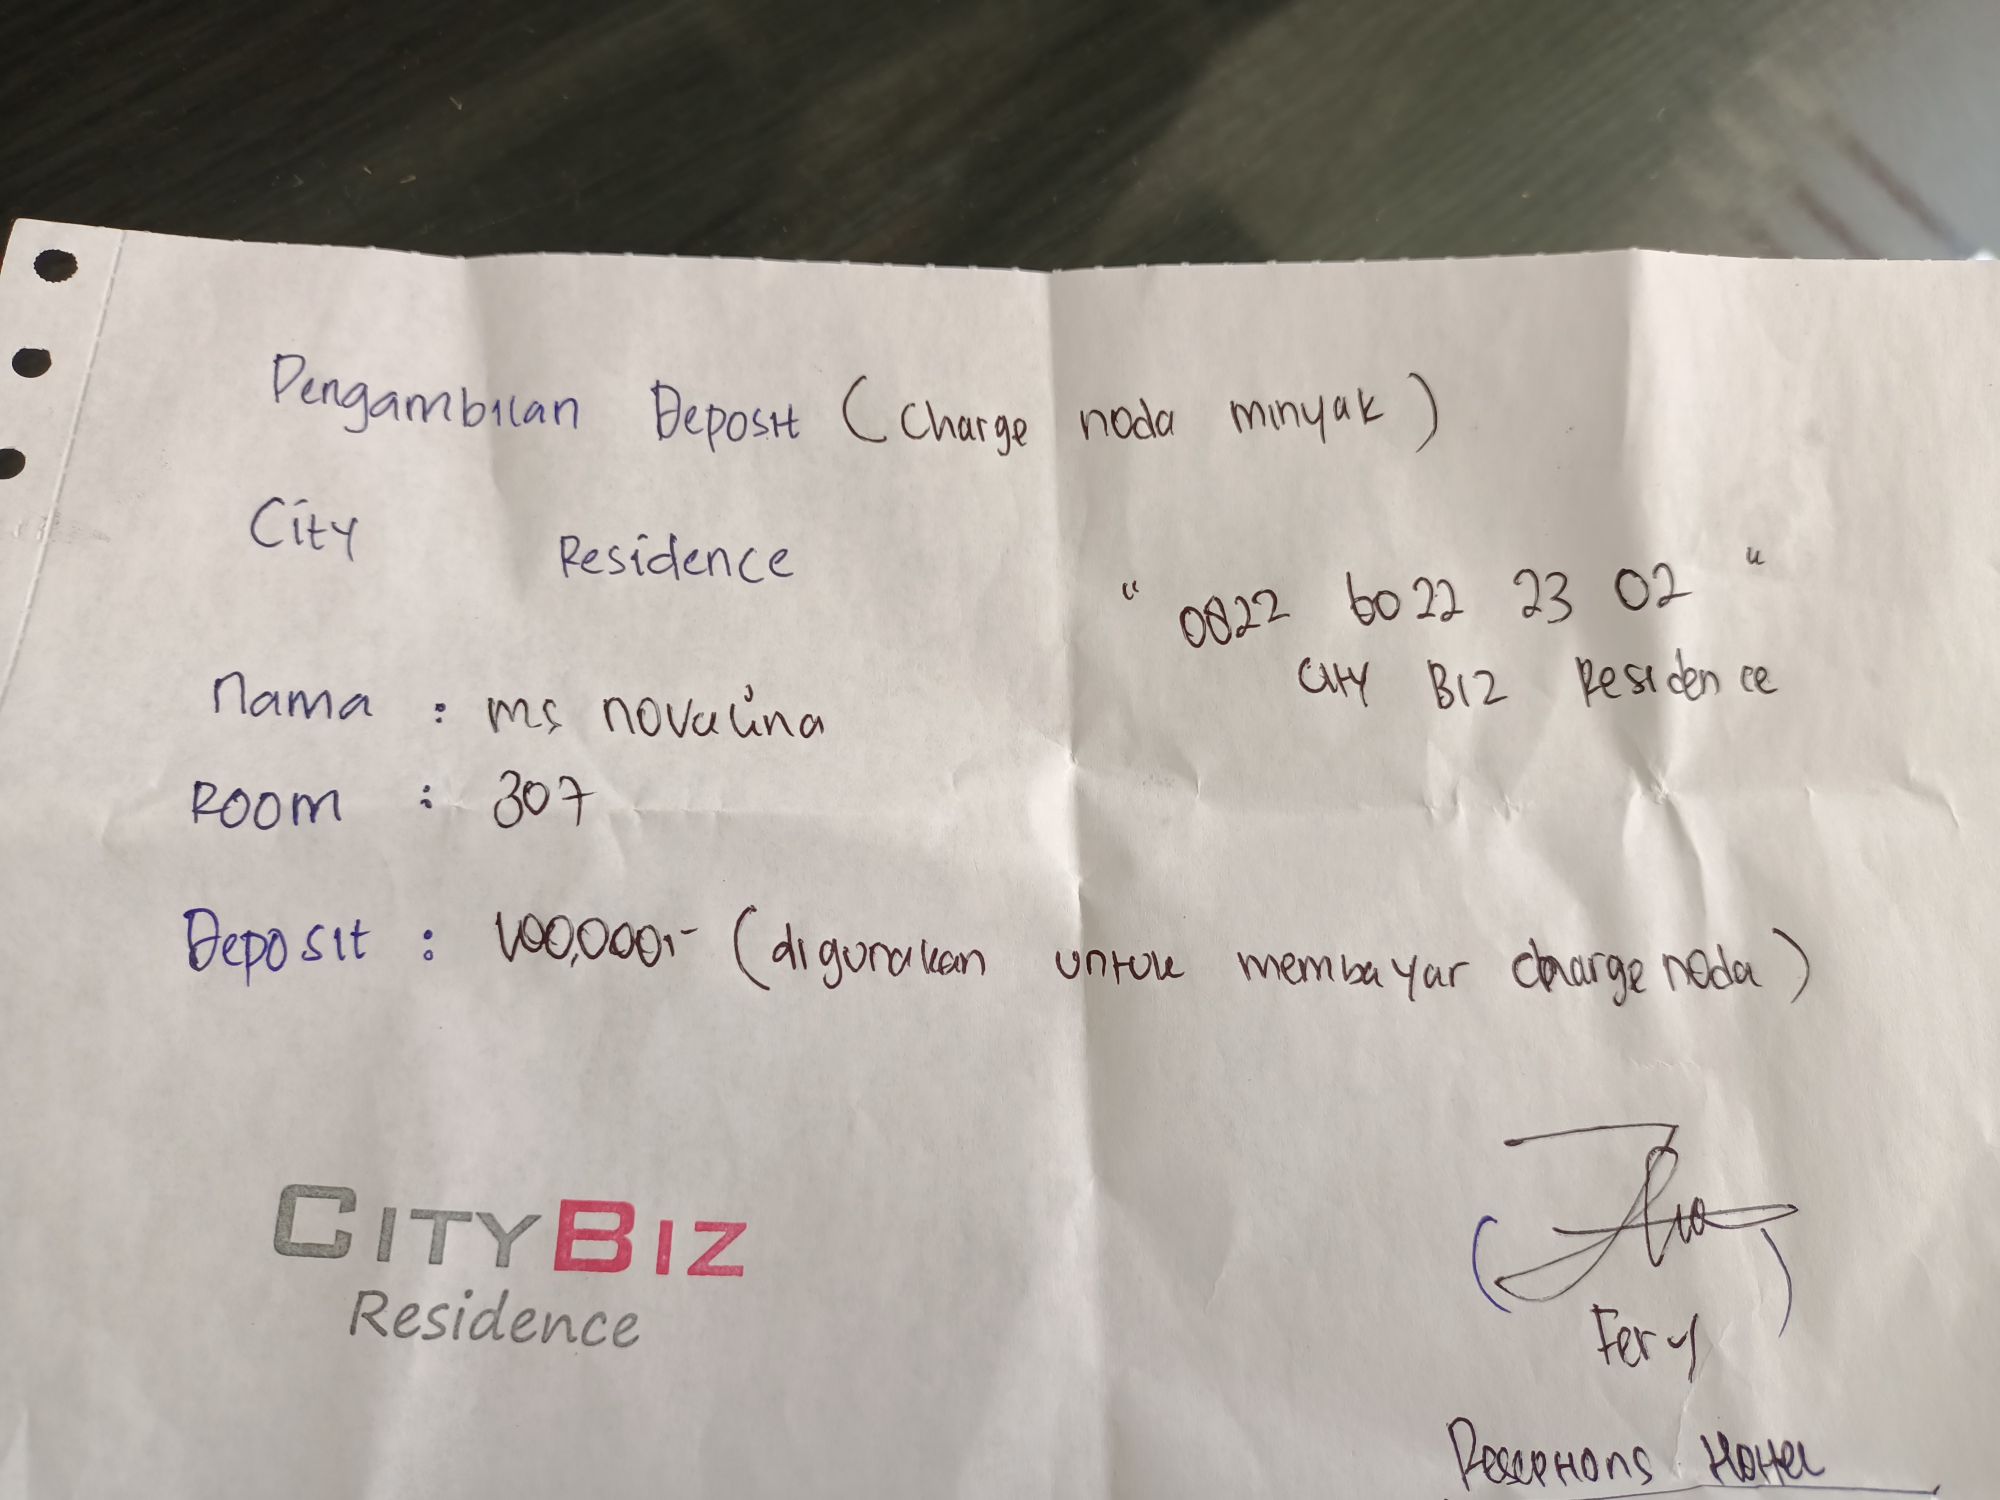 Pengambilan Deposit (Charge noda minyak)
City Residence
" 0822 6022 23 02 "
City Biz Residence
Nama : ms novalina
Room : 307
Deposit : 100,000,- (digunakan untuk membayar charge noda)
CITYBIZ
Residence
Fery
Reseptions Hotel